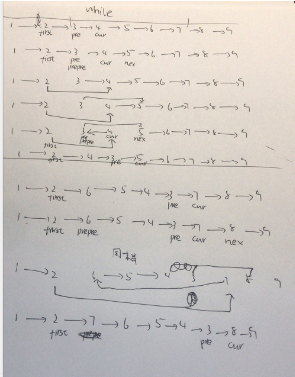 while
1 → 2 → 3 → 4 → 5 → 6 → 7 → 8 → 9
first pre cur
1 → 2 → 3 → 4 → 5 → 6 → 7 → 8 → 9
first pre cur nex
prepre
1 → 2 3 → 4 → 5 → 6 → 7 → 8 → 9
1 → 2 3 4 → 5 → 6 → 7 → 8 → 9
1 → 2 3 ← 4 5 → 6 → 7 → 8 → 9
first prepre cur nex
1 → 2 → 4 → 3 → 5 → 6 → 7 → 8 → 9
first pre cur
1 → 2 → 6 → 5 → 4 → 3 → 7 → 8 → 9
first pre cur
1 → 2 → 6 → 5 → 4 → 3 → 7 → 8 → 9
first prepre pre cur nex
同样
1 → 2 → 5 → 7 → 8 9
1 → 2 → 7 → 6 → 5 → 4 → 3 → 8 → 9
first pre cur